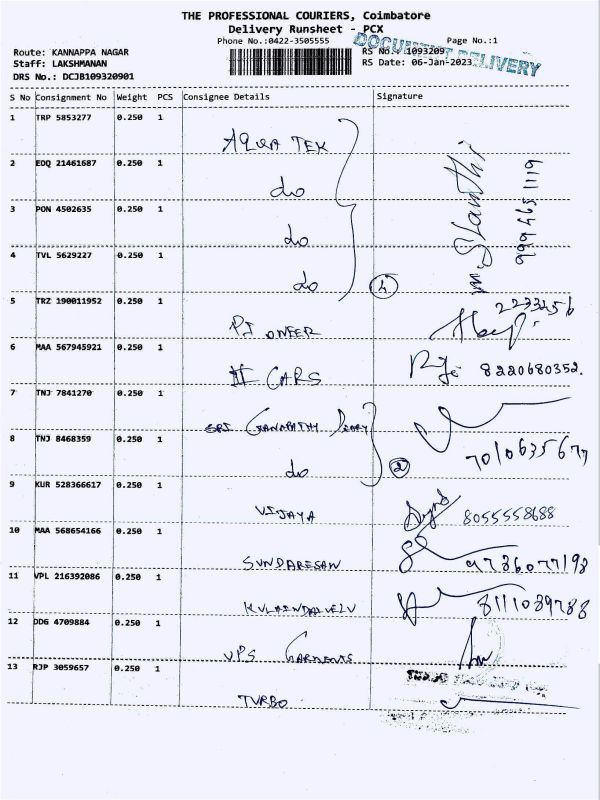 THE PROFESSIONAL COURIERS, Coimbatore
Delivery Runsheet - PCX
Phone No.:0422-3505555
Page No.:1
DOCUMENT DELIVERY
Route: KANNAPPA NAGAR
RS No.: 1093209
Staff: LAKSHMANAN
RS Date: 06-Jan-2023
DRS No.: DCJB109320901
S No Consignment No Weight PCS Consignee Details Signature
1 TRP 5853277 0.250 1
AQUA TEK
2 EDQ 21461687 0.250 1
do
3 PON 4502635 0.250 1
do
4 TVL 5629227 0.250 1
do 4
M. Shanthi
5 TRZ 190011952 0.250 1
PIONEER 2233456
6 MAA 567945921 0.250 1
III CARS 8220680352.
7 TNJ 7841270 0.250 1
SRI GANNAPATHY DIARY
8 TNJ 8468359 0.250 1
do 2
9 KUR 528366617 0.250 1
VIJAYA 8055558688
10 MAA 568654166 0.250 1
SUNDARESAN 9786077198
11 VPL 216392086 0.250 1
KULAINDAIVELU 8111039788
12 DDG 4709884 0.250 1
VPS GARMENTS
13 RJP 3059657 0.250 1
TURBO